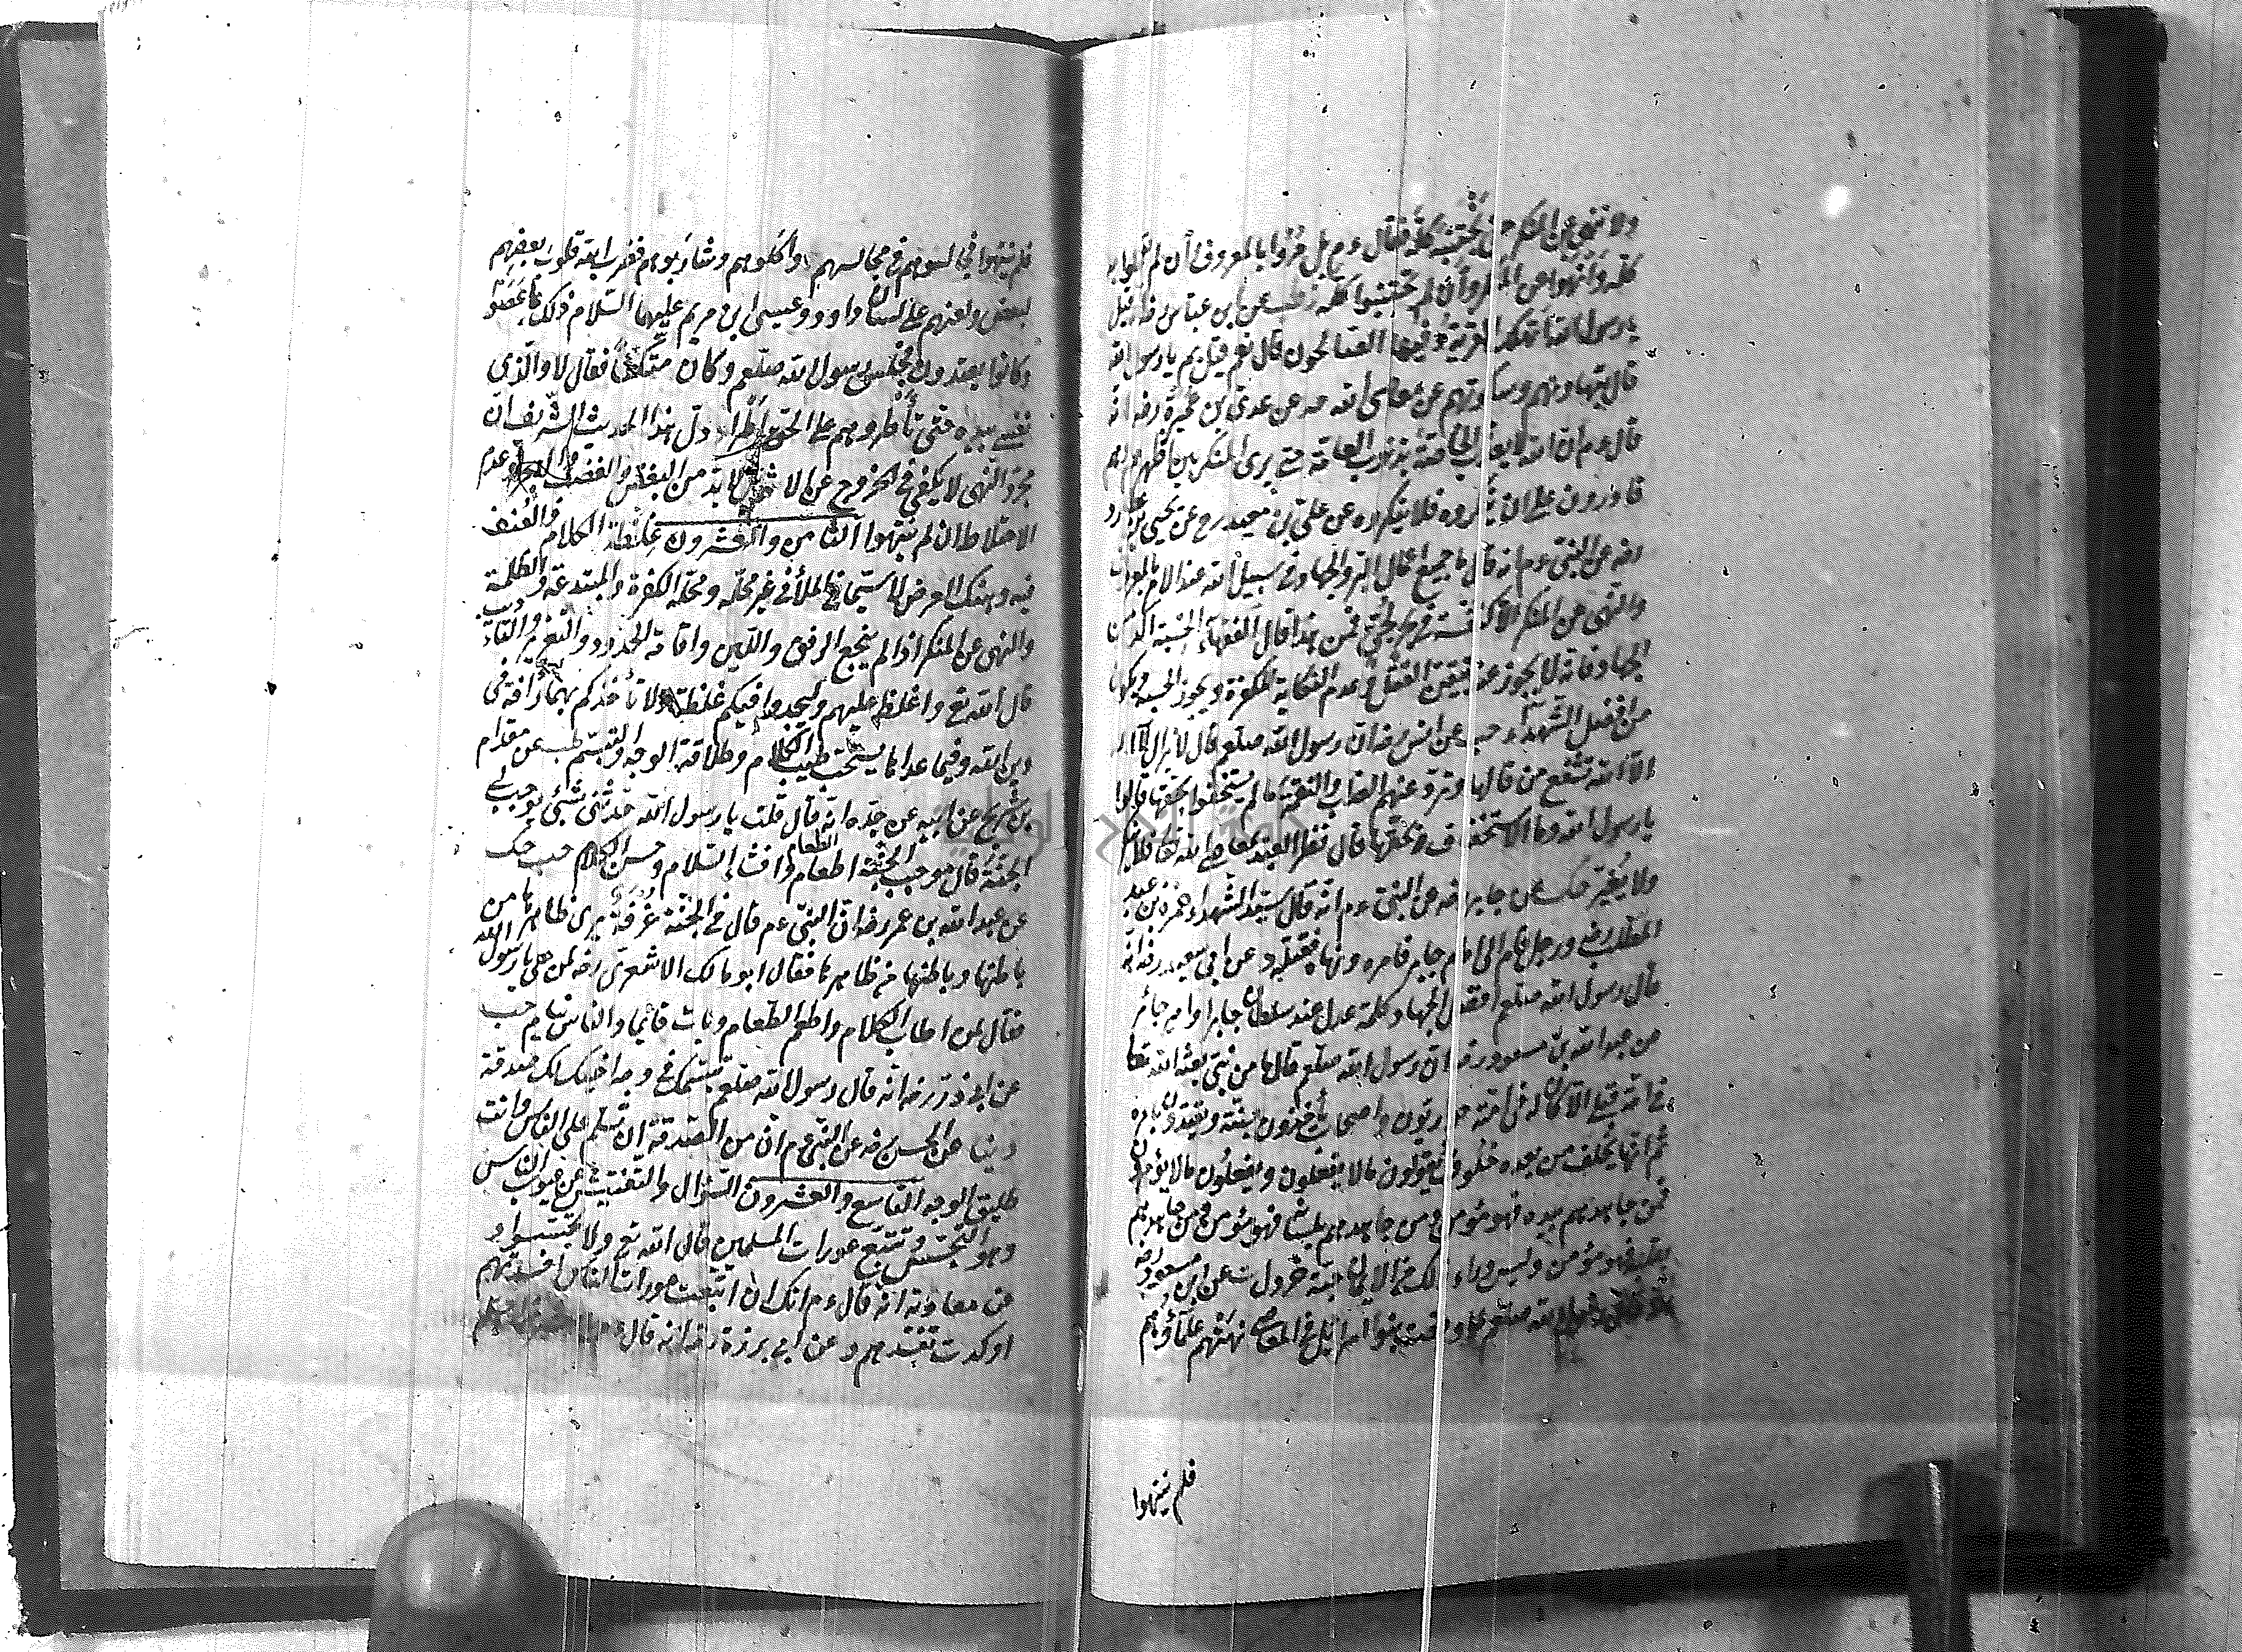 ولا ننهى عن المنكر حتى نجتنبه كله فقال ءم بل مروا بالمعروف وأن لم تعملوا به
كله وانهوا عن المنكر وأن لم تجتنبوا كله طب عن ابن عباس قيل
يا رسول الله أتهلك القرية وفيها الصالحون قال نعم قيل بم يا رسول الله
قال بتهاونهم وسكوتهم عن معاصى الله حد عن عدى بن عميرة رضه انه
قال ءم ان الله لا يعذب الخاصة بذنوب العامة حتى يرى المنكر بين اظهرهم وهم
قادرون على ان ينكروه فلا ينكروه عن على بن معبد رح عن يحيى بن
رضه عن النبى ءم انه قال ما جميع اعمال البر والجهاد فى سبيل الله عند الامر بالمعروف
والنهى عن المنكر الا كنفثة فى بحر لجى فمن هذا قال الفقهاء الحسبة آكد من
الجهاد فانه لا يجوز عند تيقن القتل وعدم النكاية للكفرة ويجوز الحسبة ويكون
من افضل الشهداء حب عن انس رضه ان رسول الله صلعم قال لا يزال لا اله
الا الله تنفع من قالها وترد عنهم العذاب والنقمة ما لم يستخفوا بحقها قالوا
يا رسول الله وما الاستخفاف بحقها قال تظهر العمل بمعاصى الله تعا فلا ينكر
ولا يغير حك عن جابر رضه عن النبى ءم انه قال سيد الشهداء حمزة بن عبد
المطلب ورجل قام الى امام جابر فامره ونهاه فقتله د عن ابى سعيد رضه انه
قال رسول الله صلعم افضل الجهاد كلمة عدل عند سلطان جابر او امير جائر
م عن عبد الله بن مسعود رضه ان رسول الله صلعم قال ما من نبى بعثه الله تعا
فى امة قبلى الا كان له فى امته حواريون واصحاب يأخذون بسنته ويقتدون بامره
ثم انها يخلف من بعده خلوف يقولون ما لا يفعلون ويفعلون ما لا يؤمرون
فمن جاهدهم بيده فهو مؤمن ومن جاهدهم بلسانه فهو مؤمن ومن جاهدهم
بقلبه فهو مؤمن وليس وراء ذلك من الايمان حبة خردل ت عن ابن مسعود رضه
انه قال رسول الله صلعم لما وقعت بنوا اسرائيل فى المعاصى نهتهم علماؤهم
فلم ينتهوا
فلم ينتهوا فجالسوهم فى مجالسهم وآكلوهم وشاربوهم فضرب الله قلوب بعضهم
لبعض ولعنهم على لسان داود وعيسى ابن مريم عليهما السلام ذلك بما عصوا
وكانوا يعتدون فجلس رسول الله صلعم وكان متكئا فقال لا والذى
نفسى بيده حتى تأطروهم على الحق اطرا دل هذا الحديث الشريف ان
مجرد النهى لا يكفى فى الخروج عن الاثم لا بد من البغض والغضب وعدم
الاختلاط ان لم ينتهوا الثامن والعشرون غلظة الكلام والعنف
فيه وهتك العرض لا سيما فى الملأ فى غير محله ومحله الكفرة والمبتدعة والظلمة
والنهى عن المنكر اذا لم ينجع الرفق واللين واقامة الحدود والتعزير والتأديب
قال الله تع واغلظ عليهم وليجدوا فيكم غلظة ولا تأخذكم بهما رأفة فى
دين الله وفيما عداها يستحب طيب الكلام وطلاقة الوجه والتبسم طب عن مقدام
بن شريح عن ابيه عن جده انه قال قلت يا رسول الله حدثنى بشئ يوجب لى
الجنة قال موجب الجنة اطعام الطعام وافشاء السلام وحسن الكلام حب حك
عن عبد الله بن عمر رضه ان النبى ءم قال فى الجنة غرفة يرى ظاهرها من
باطنها وباطنها من ظاهرها فقال ابو مالك الاشعرى رضه لمن هى يا رسول الله
فقال لمن اطاب الكلام واطعم الطعام وبات قائما والناس نيام حب
عن ابى ذر رضه انه قال رسول الله صلعم تبسمك فى وجه اخيك لك صدقة
دنيا عن الحسن رضه عن النبى ءم ان من الصدقة ان تسلم على الناس وانت
طليق الوجه التاسع والعشرون السؤال والتفتيش عن عيوب الناس
وهو التجسس وتتبع عورات المسلمين قال الله تع ولا تجسسوا د
عن معاوية انه قال ءم انك ان اتبعت عورات الناس افسدتهم
او كدت تفسدهم د عن ابى برزة رضه انه قال